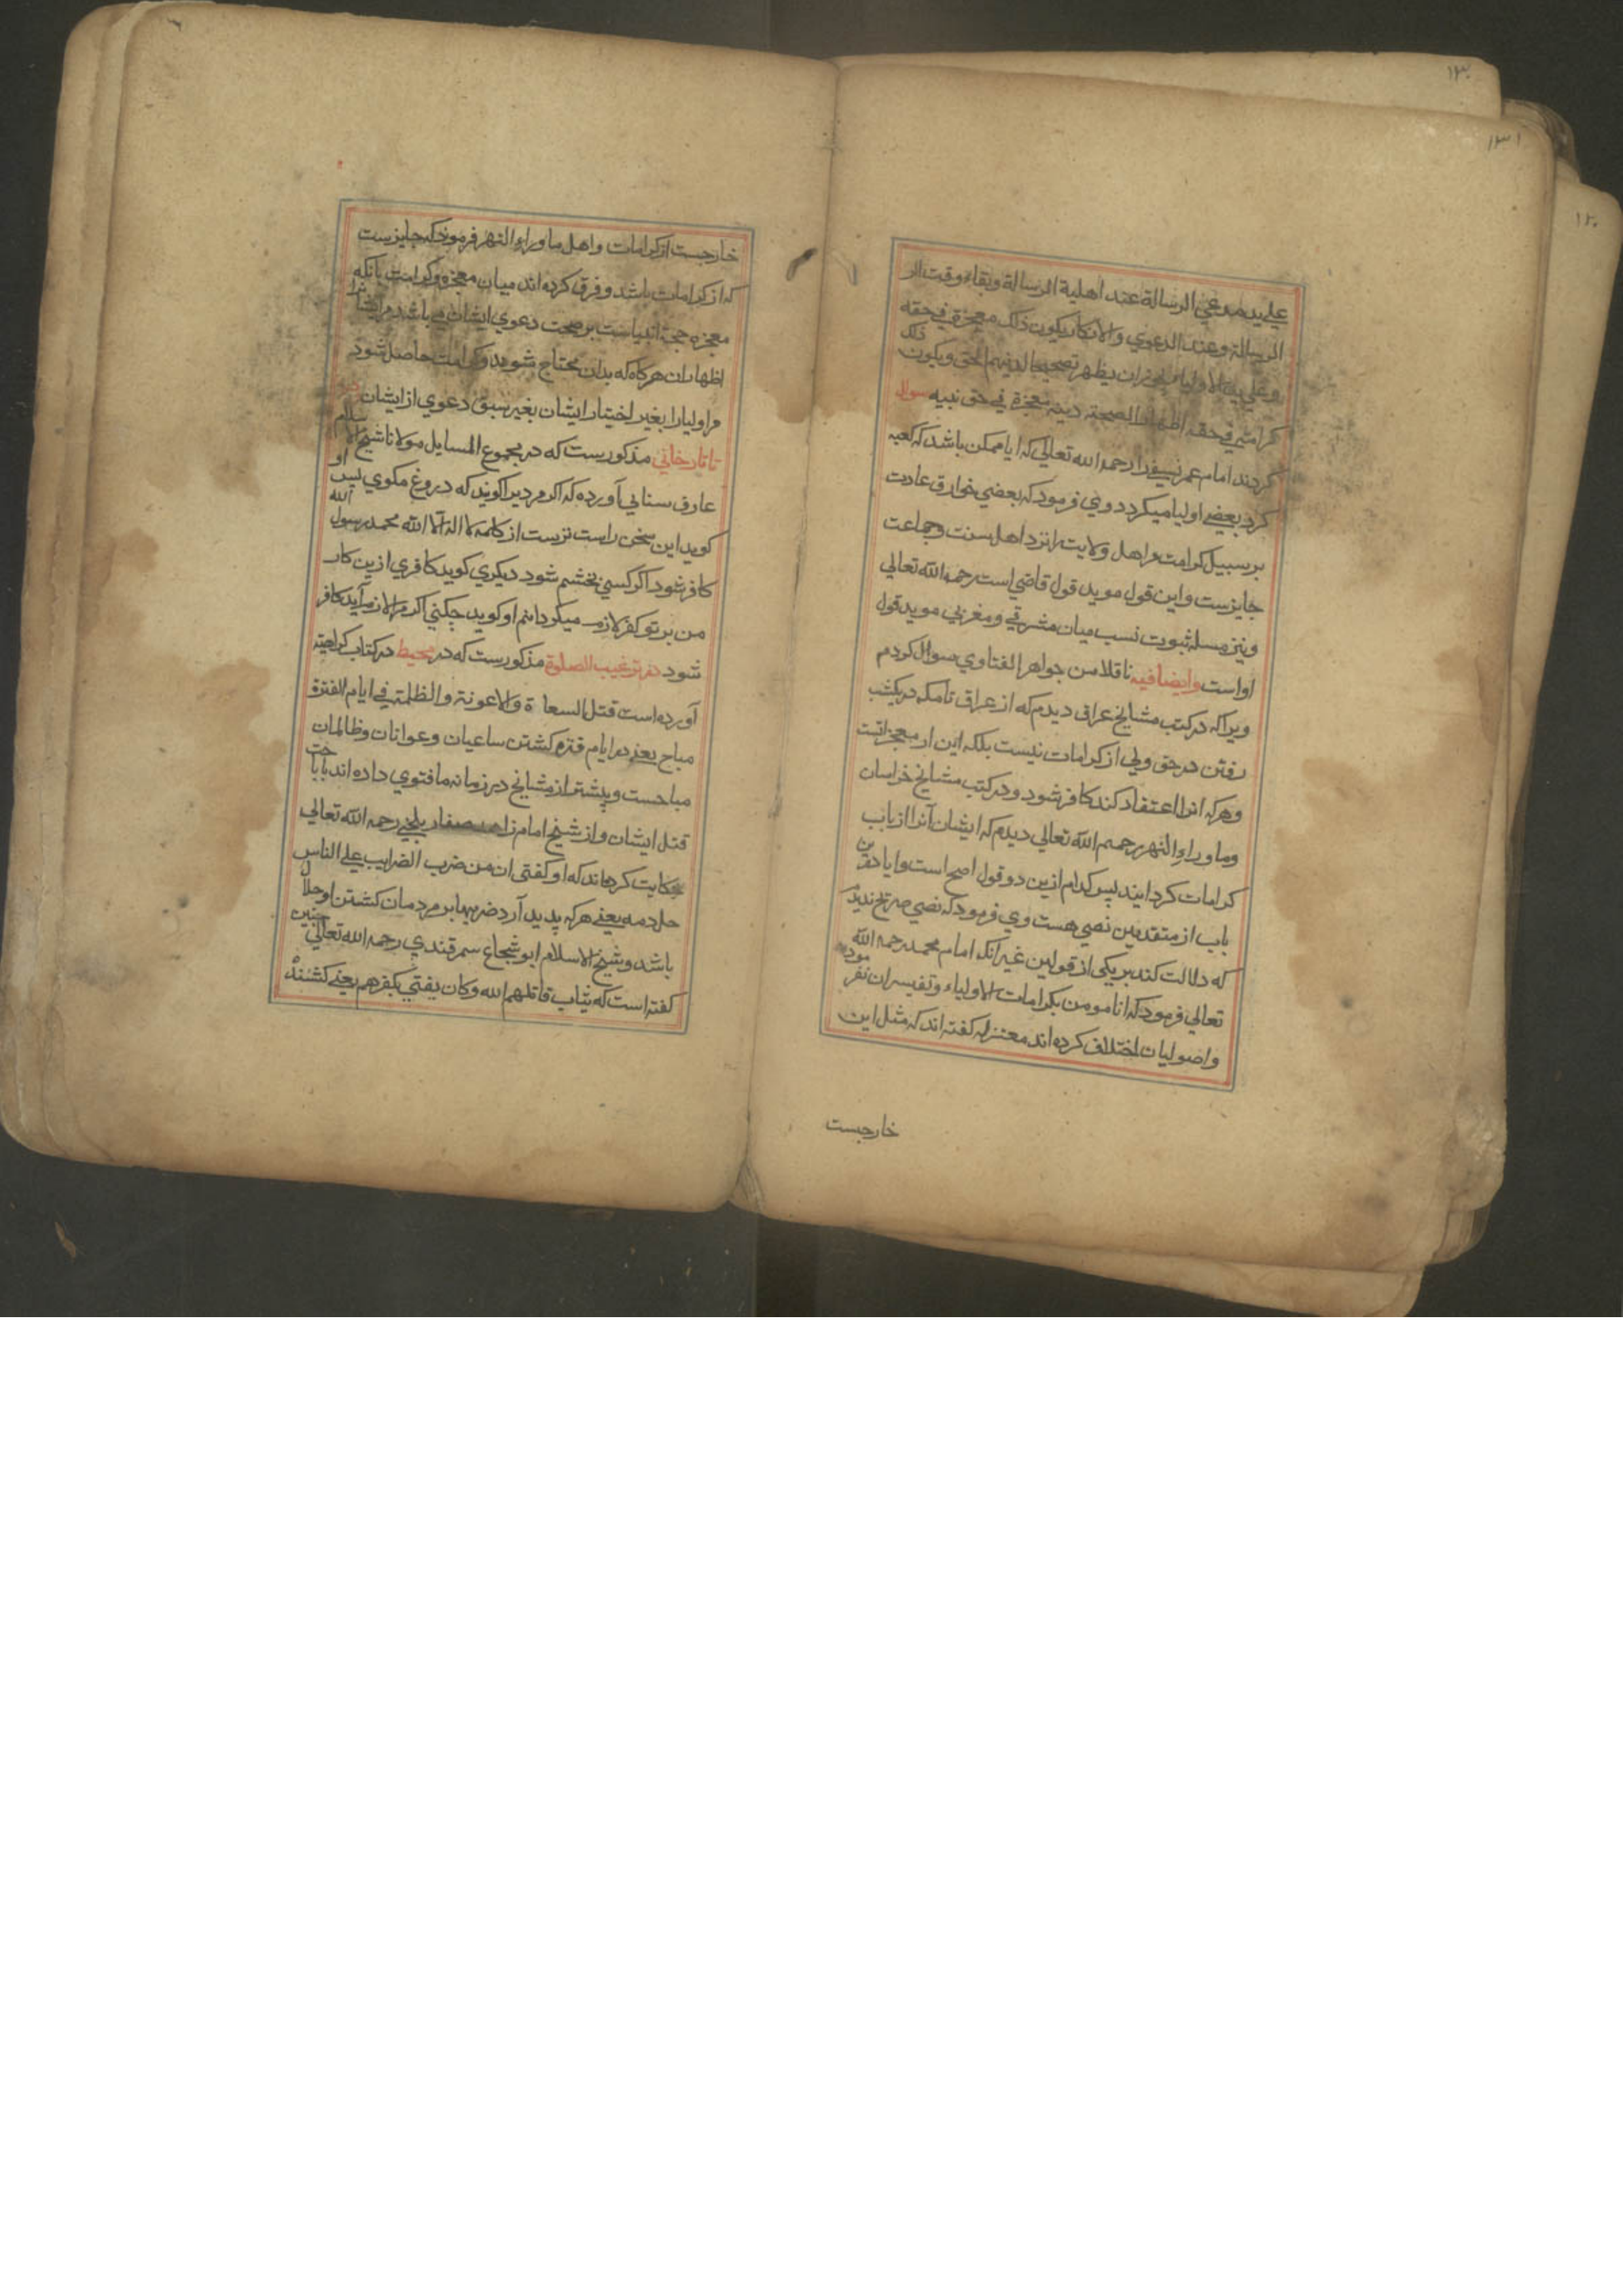 ۱۳۰
۱۳۱
۱۲۰
علي يد مدعي الرسالة عند اهلية الرسالة وبقاء وقت ار
الرسالة وعند الدعوي والانكار يكون ذلك معجزة في حقه
وعلي يد الاولياء يجوز ان يظهر تصحيحا لدينهم الحق ويكون ذلك
كرامتي في حقه اظهارا لصحته دينه معجزة في حق نبيه سوال
كردند امام عمر نسفي را رحمه الله تعالي كه ايا ممكن باشد كه كعبه
كرد بعضي اوليا ميكردد وي فرمود كه بعضي خوارق عادت
بر سبيل كرامت مر اهل ولايت را نزد اهل سنت وجماعت
جايزست واين قول مويد قول قاضي است رحمه الله تعالي
ونيز مسله ثبوت نسب ميان مشرقي ومغربي مويد قول
اواست وايضا فيه ناقلا من جواهر الفتاوي سوال كردم
ويرا كه در كتب مشايخ عراق ديدم كه از عراق تا مكه در يكشب
رفتن در حق ولي از كرامات نيست بلكه اين از معجزاتست
وهركه انرا اعتقاد كند كافر شود ودر كتب مشايخ خراسان
وما وراء النهر رحمهم الله تعالي ديدم كه ايشان آنرا از باب
كرامات كردانيد پس كدام ازين دو قول اصح است وايا درين
باب از متقدمين نصي هست وي فرمود كه نصي صريح نديدم
كه دلالت كند بر يكي از قولين غير آنكه امام محمد رحمه الله
تعالي فرمود كه انا مومن بكرامات الاولياء وتفسير ان نفرموده
واصوليان اختلاف كرده اند معتزله كفته اند كه مثل اين
خارجست
خارجست از كرامات واهل ما وراء النهر فرموده كه جايزست
كه از كرامات باشد وفرق كرده اند ميان معجزه وكرامت بانكه
معجزه حجت انبياست بر صحت دعوي ايشان مي باشد مر ايشانرا
اظهار ان هركاه كه بدان محتاج شويد وكرامت حاصل شود
مر اوليا را بغير اختيار ايشان بغير سبق دعوي از ايشان در
تاتارخاني مذكورست كه در مجموع المسايل مولانا شيخ الاسلام
عارف سنايي آورده كه اكر مرديرا كويند كه دروغ مكوي پس او
كويد اين سخن راست ترست از كلمه لا اله الا الله محمد رسول الله
كافر شود اكر كسي بخشم شود ديكري كويد كافري ازين كار
من بر تو كفر لازم ميكردانم او كويد چكني اكر مرا لازم آيد كافر
شود در ترغيب الصلوة مذكورست كه در محيط در كتاب كراهية
آورده است قتل السعا ة والاعونة والظلمة في ايام الفترة
مباح يعني در ايام فتره كشتن ساعيان وعوانان وظالمان
مباحست وپيشتر از مشايخ در زمانه ما فتوي داده اند باباحت
قتل ايشان واز شيخ امام زاهد صفار بلخي رحمه الله تعالي
حكايت كرده اند كه او كفتي ان من ضرب الضرايب علي الناس
حل دمه يعني هركه پديد آرد ضريبها بر مردمان كشتن او حلال
باشد وشيخ الاسلام ابو شجاع سمرقندي رحمه الله تعالي چنين
كفته است كه يثاب قاتلهم الله وكان يفتي بكفرهم يعني كشندهٔ